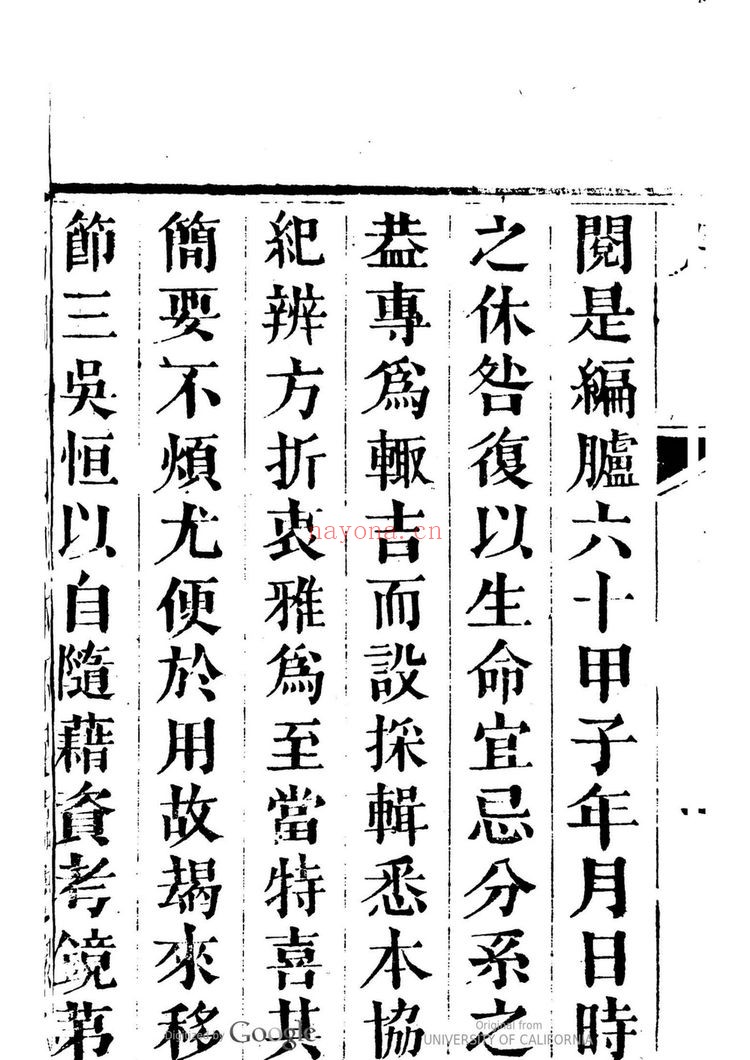 閱是編臚六十甲子年月日時
之休咎復以生命宜忌分系之
葢專爲諏吉而設採輯悉本協
紀辨方折衷雅爲至當特喜其
簡要不煩尤便於用故朅來移
節三吳恒以自隨藉資考鏡第
nayona.cn
Digitized by Google
Original from
UNIVERSITY OF CALIFORNIA